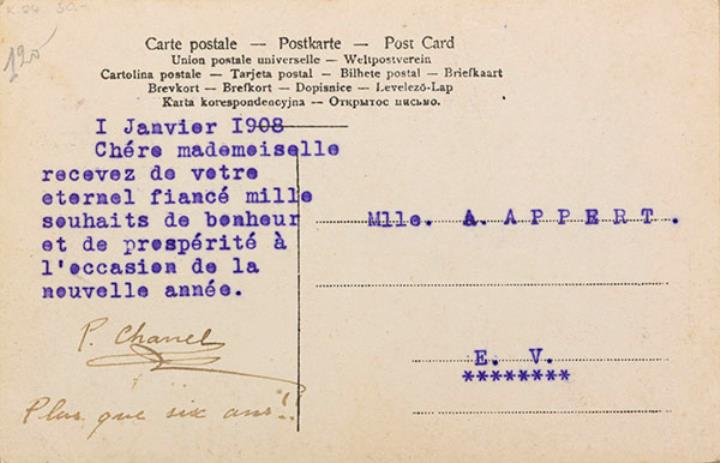 K. 24 50.-
120
Carte postale — Postkarte — Post Card
Union postale universelle — Weltpostverein
Cartolina postale — Tarjeta postal — Bilhete postal — Briefkaart
Brevkort — Brefkort — Dopisnice — Levelező-Lap
Karta korespondencyjna — Открытое письмо.
I Janvier I908
Chére mademoiselle
recevez de votre
eternel fiancé mille
souhaits de bonheur
et de prospérité à
l'occasion de la
nouvelle année.
P. Chanel
Plus que six ans!!
Mlle. A. APPERT.
E. V.
********